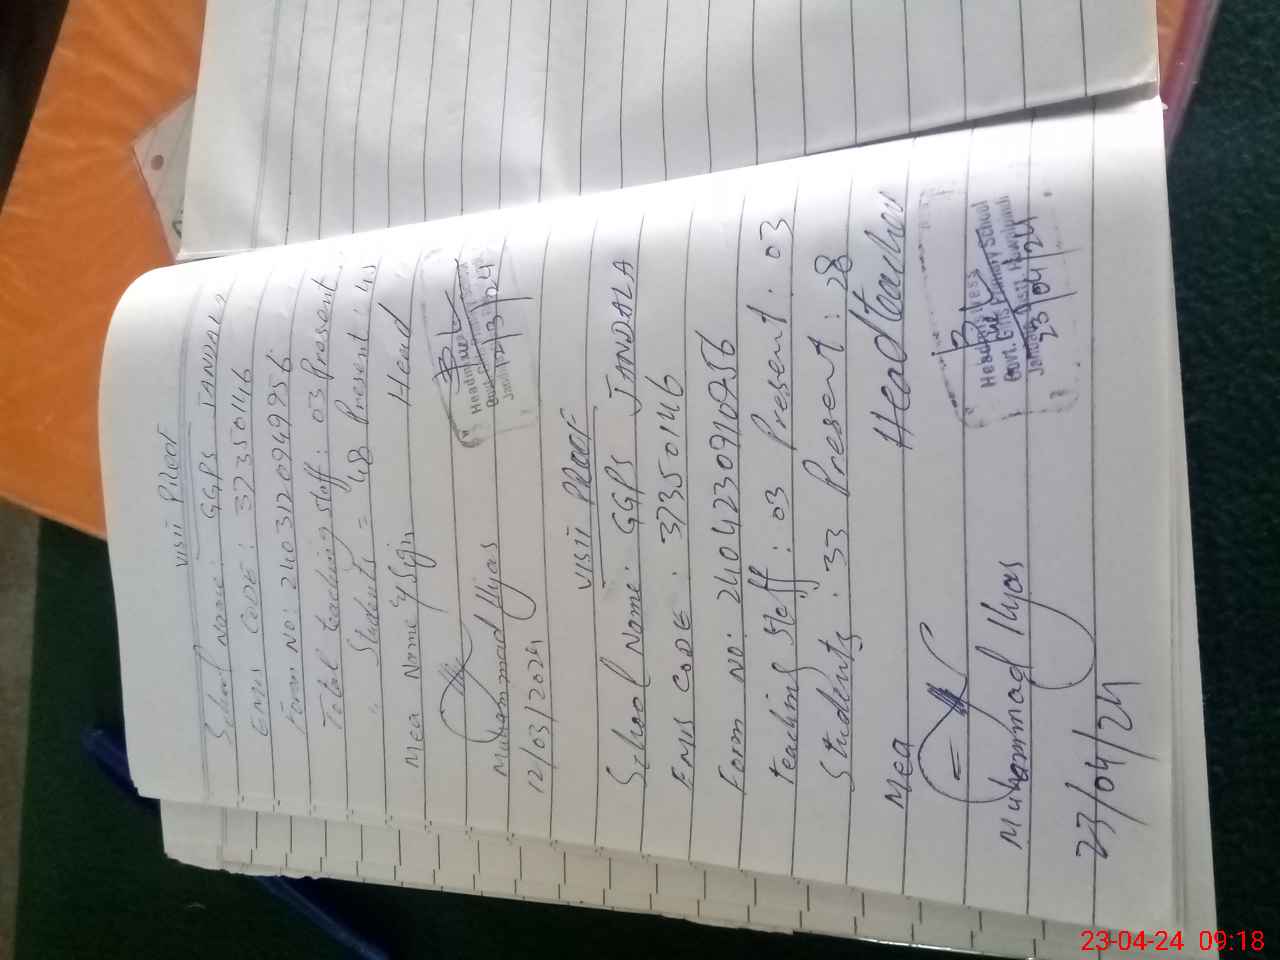 VISIT PROOF
School Name: GGPS JANDALA
EMIS CODE: 37350146
Form No: 
Total teaching staff: 03 Present
" Students = 48 Present:
Mea Name & Sign Head
Muhammad Ilyas
12/03/2024
Headmistress
12/3/24
VISIT PROOF
School Name: GGPS JANDALA
EMIS CODE: 37350146
Form NO: 24042309109256
Teaching Staff: 03 Present: 03
Students: 33 Present: 28
Mea Head teacher
Muhammad Ilyas
23/04/24
Headmistress
Govt. Girls Primary School
23/04/24
23-04-24 09:18